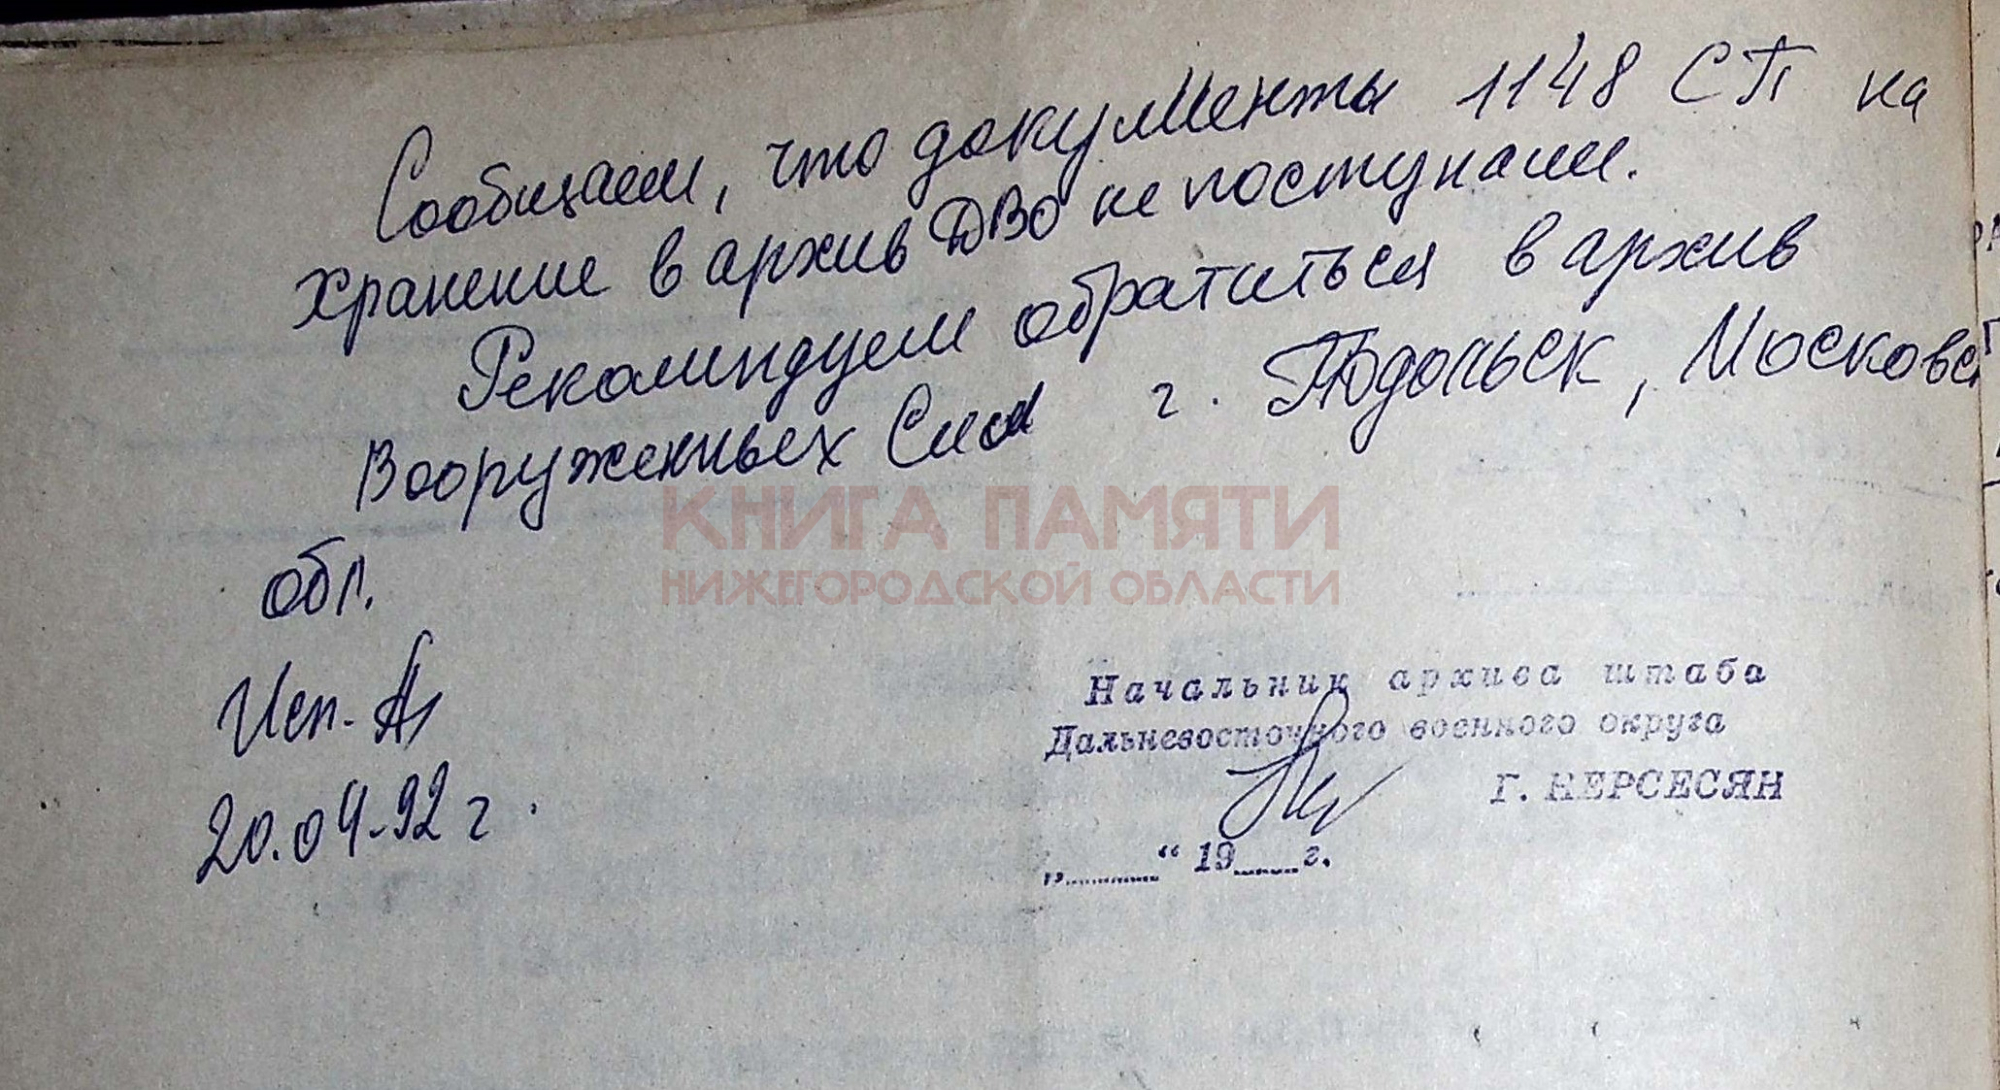 Сообщаем, что документы 1148 СП на
хранение в архив ДВО не поступали.
Рекоминдуем обратиться в архив
Вооруженных Сил г. Подольск, Московс
обл.
Исп.
20.04.92 г.
КНИГА ПАМЯТИ
НИЖЕГОРОДСКОЙ ОБЛАСТИ
Начальник архива штаба
Дальневосточного военного округа
Г. НЕРСЕСЯН
„ “ 19 г.